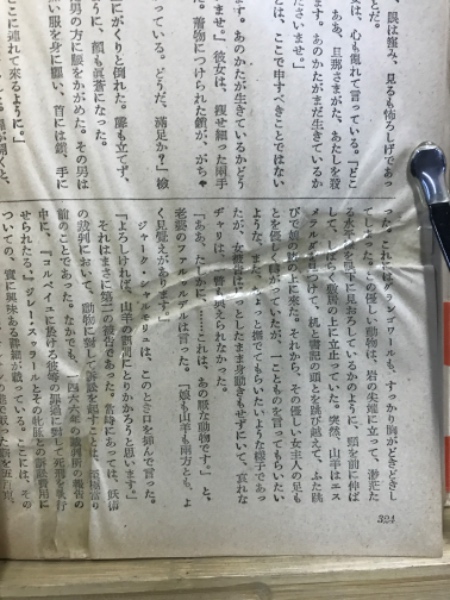 、眼は窪み、見るも怖ろしげであつ
とだ。
女は、心も亂れて言つている。「どこ
ああ、旦那さまがた、あたしを殺
ます。あのかたがまだ生きているか
ださいませ。」
とは、ここで申すべきことではない
ます。あのかたが生きているかどう
ませ。」彼女は、痩せ細つた兩手
た。着物につけられた鎖が、がちや
ている。どうだ、滿足か？」檢
にがくりと倒れた。膝も立てず、
うに、顏も眞蒼になつた。
男の方に腰をかがめた。その男は
い服を身に纏い、首には鎖、手に
ここに連れて來るように。」
つた。これにはグランゴワールも、すつかり胸がどきどきし
てしまつた。この優しい動物は、岩の尖端に立つて、渺茫た
る水平を眼下に見おろしているかのように、頸を前に伸ば
して、しばらく敷居の上に立止つていた。突然、山羊はエス
メラルダを見つけて、机と書記の頭とを跳び越えて、ふた跳
びで娘の膝の上に來た。それから、その優しい女主人の足も
とを優しく轉がつていたが、一ことものを言つてもらいたい
ような、また、ちよつと撫でてもらいたいような樣子であつ
たが、女被告はじつとしたまま身動きもせずにいて、哀れな
ヂャリは一瞥も與えられなかつた。
「ああ、たしかに、……これは、あの厭な動物です。」と、
老婆のファルゥルデルは言つた。「娘も山羊も兩方とも、よ
く見覺えがあります。」
ジャーク・シャルモリュは、このとき口を挾んで言つた。
「よろしければ、山羊の訊問にとりかかろうと思います。」
それはまさに第二の被告であつた。當時にあつては、妖術
の裁判において、動物に對して訴訟を起すことは、至極當り
前のことであつた。なかでも、一四六六年の裁判所の報告の
中に、『コルベイユに於ける彼等の罪過に對して死刑を執行
せられたる』ジレー・スゥラールとその牝豚との訴訟費用に
ついての、實に興味ある詳細が載つている。ここには、その
324